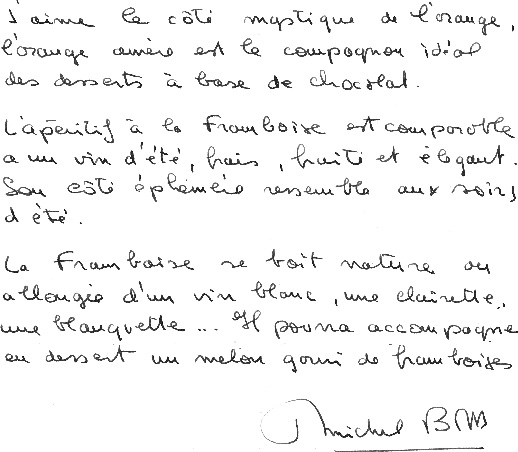 J'aime le côté mystique de l'orange,
l'orange amère est le compagnon idéal
des desserts à base de chocolat.
L'apéritif à la Framboise est comparable
a un vin d'été, frais, fruité et élégant.
Son côté éphémère ressemble aux soirs
d'été.
La Framboise se boit nature ou
allongée d'un vin blanc, une clairette,
une blanquette... Il pourra accompagner
en dessert un melon garni de framboises
Michel BRAS